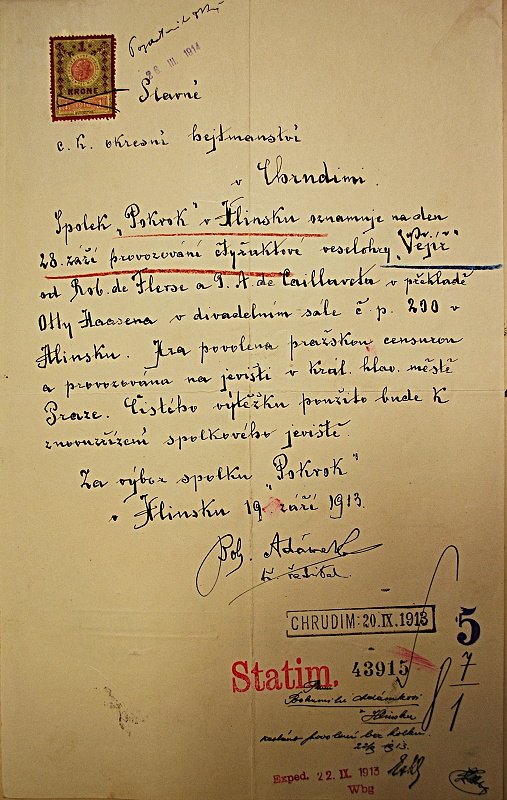 1
KRONE
28 III. 1914
Slavné
c. k. okresní hejtmanství
v Chrudimi.
Spolek „Pokrok" v Hlinsku oznamuje na den
28. září provozování čtyraktové veselohry „Vějíř"
od Rob. de Flerse a G. A. de Caillaveta v překladě
Otty Haasena v divadelním sále č. p. 200 v
Hlinsku. Hra povolena pražskou censurou
a provozována na jevišti v král. hlav. městě
Praze. Čistého výtěžku použito bude k
znovuzřízení spolkového jeviště.
Za výbor spolku „Pokrok"
v Hlinsku 19 září 1913.
Boh. Adámek
t. č. ředitel.
CHRUDIM: 20.IX.1913
5
7
1
Statim. 43915
Pan
Bohumilu Adámkovi
v Hlinsku
povolení bez kolku.
22/9 1913.
Exped. 22. IX. 1913
Wbg